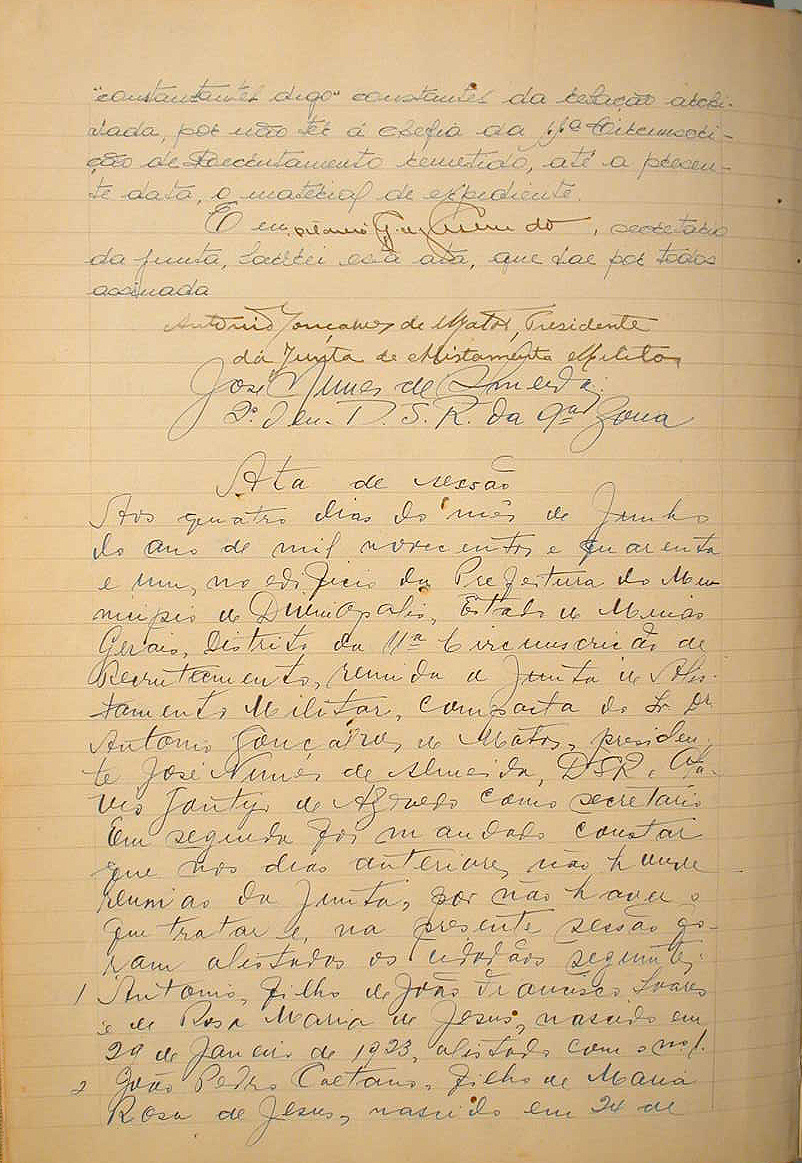 "constantantes digo" constantes da relação archi-
vada, por não ter a chefia da 11ª Circunscri-
ção de Recrutamento remetido, até a presen-
te data, o material de expediente.
E eu, secretario
da junta, lavrei esta ata, que vae por todos
assinada
Antonio Gonçalves de Matos, Presidente
da Junta de Alistamento Militar
José Nunes de Almeida,
2º Ten. D. S. R. da 9ª Zona
Ata de sessão
Aos quatro dias do mês de Junho
do ano de mil novecentos e quarenta
e um, no edificio da Prefeitura do Mu-
nicipio de Divinopolis, Estado de Minas
Gerais, Distrito da 11ª Circunscrição de
Recrutamento, reunida a Junta de Alis-
tamento Militar, composta do Sr. Dr.
Antonio Gonçalves de Matos, presiden-
te José Nunes de Almeida, DSR, e
de Azevedo como secretario
Em seguida foi mandado constar
que nos dias anteriores não houve
reunião da Junta, por não haver o
que tratar e, na presente sessão fo-
ram alistados os cidadãos seguintes:
1 Antonio, filho de João Francisco Soares
e de Rosa Maria de Jesus, nascido em
29 de Janeiro de 1923, alistado com o nº 1.
2 João Pedro Caetano, filho de Maria
Rosa de Jesus, nascido em 24 de